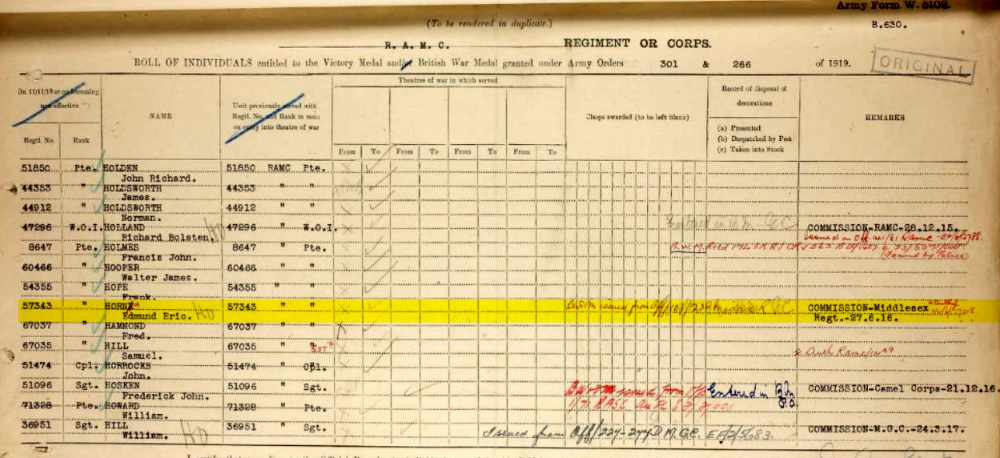 Army Form W. 5102.
(To be rendered in duplicate.)
B.630.
R.A.M.C. REGIMENT OR CORPS.
ROLL OF INDIVIDUALS entitled to the Victory Medal and/or British War Medal granted under Army Orders 301 & 266 of 1919.
ORIGINAL
On 11/11/18 or on becoming non-effective
Regtl. No. Rank
NAME
Unit previously served with Regtl. No. and Rank in same on entry into theatre of war
Theatres of war in which served
From To From To From To From To
Clasps awarded (to be left blank)
Record of disposal of decorations
(a) Presented
(b) Despatched by Post
(c) Taken into Stock
REMARKS
51850 Pte. HOLDEN 51850 RAMC Pte.
John Richard.
44353 " HOLDSWORTH 44353 " "
James.
44912 " HOLDSWORTH 44912 " "
Norman.
47296 W.O.I. HOLLAND 47296 " W.O.I. COMMISSION-RAMC-28.12.15.
Richard Bolsten.
8647 Pte. HOLMES 8647 " Pte.
Francis John.
60466 " HOOPER 60466 " "
Walter James.
54355 " HOPE 54355 " "
Frank.
57343 " 57343 " " COMMISSION-Middlesex
Edmund Eric. Regt.-27.6.16.
67037 " HAMMOND 67037 " "
Fred.
67035 " HILL 67035 " "
Samuel.
51474 Cpl. HORROCKS 51474 " Cpl.
John.
51096 Sgt. HOSKEN 51096 " Sgt. Entered in COMMISSION-Camel Corps-21.12.16
Frederick John.
71328 Pte. HOWARD 71328 " Pte.
William.
36951 Sgt. HILL 36951 " Sgt. Issued from Off/ M.G.C. COMMISSION-M.G.C.-24.3.17.
William.